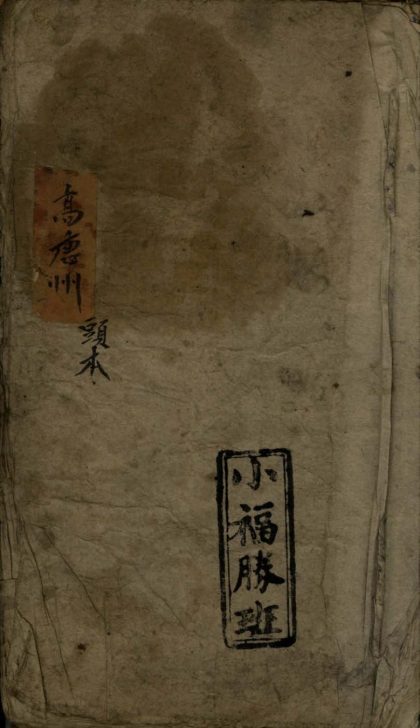 高唐州
頭本
小福勝班